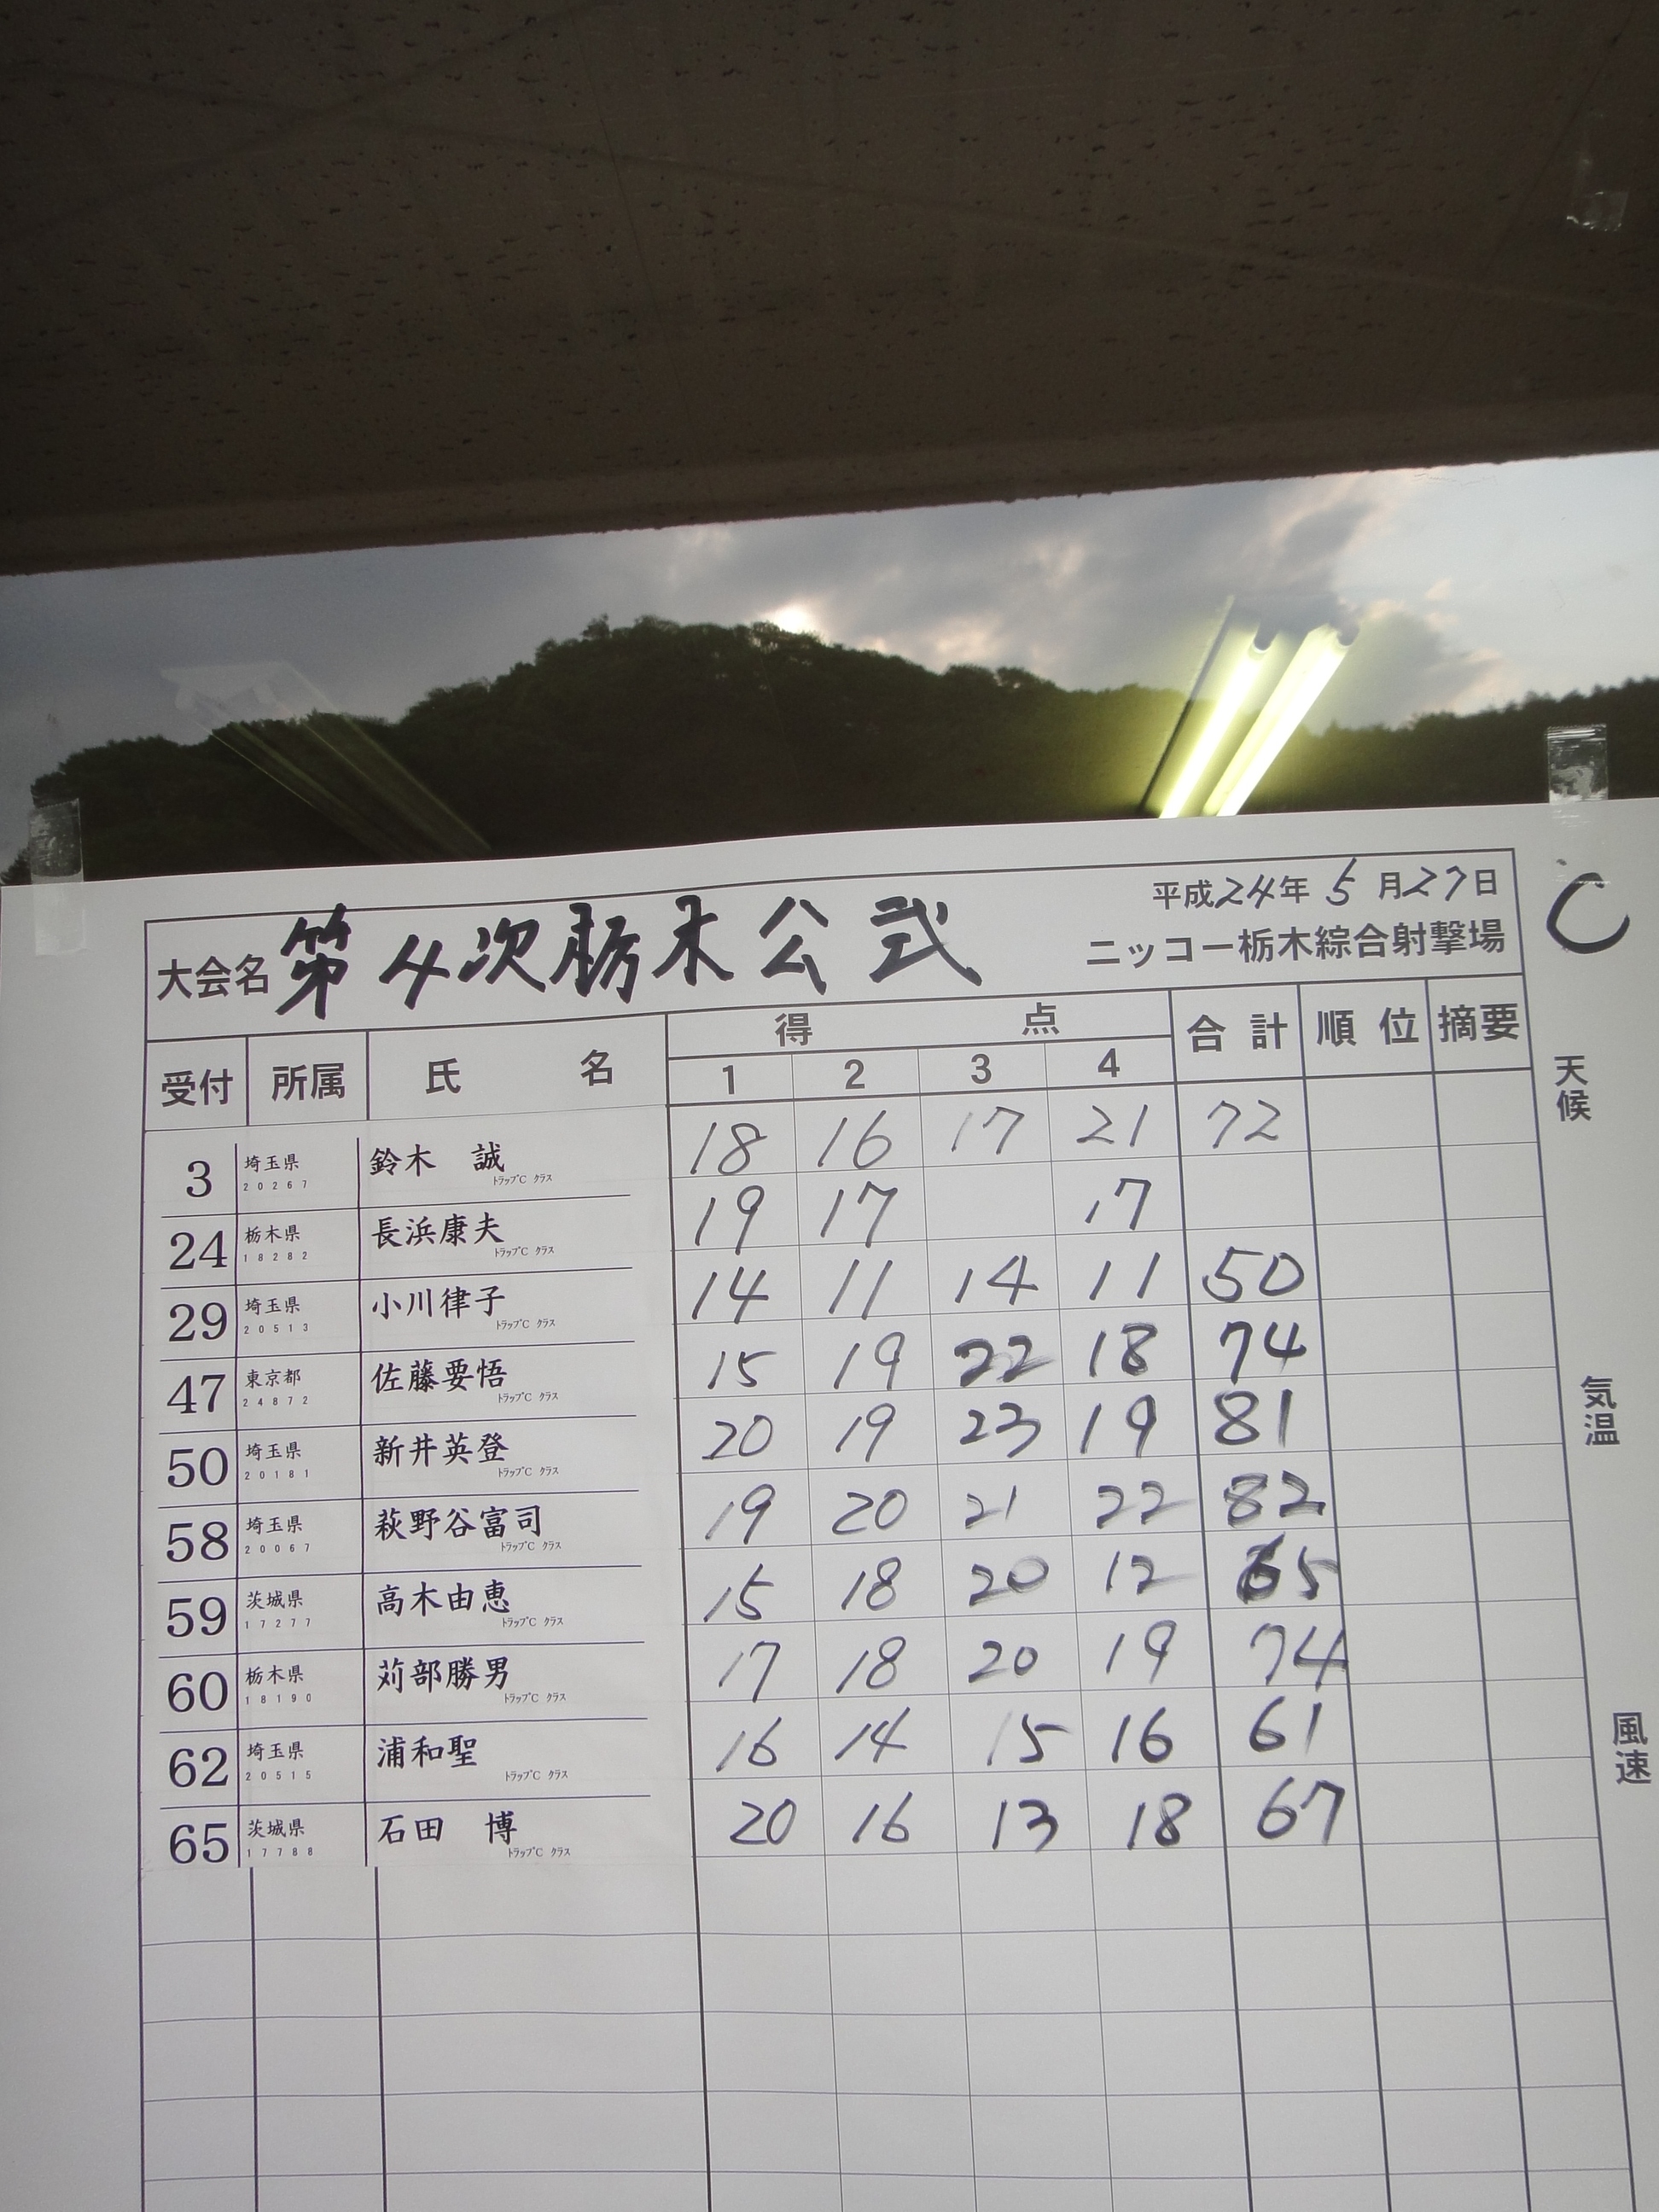 平成24年 5月27日
C
大会名 第4次栃木公式
ニッコー栃木綜合射撃場
受付 所属 氏名 得点 合計 順位 摘要
1 2 3 4
天候
3 埼玉県 鈴木 誠 18 16 17 21 72
20267 トラップC クラス
24 栃木県 長浜康夫 19 17 17
18282 トラップC クラス
29 埼玉県 小川律子 14 11 14 11 50
20513 トラップC クラス
47 東京都 佐藤要悟 15 19 22 18 74
24872 トラップC クラス
気温
50 埼玉県 新井英登 20 19 23 19 81
20181 トラップC クラス
58 埼玉県 萩野谷富司 19 20 21 22 82
20067 トラップC クラス
59 茨城県 高木由恵 15 18 20 12 65
17277 トラップC クラス
60 栃木県 苅部勝男 17 18 20 19 74
18190 トラップC クラス
風速
62 埼玉県 浦和聖 16 14 15 16 61
20515 トラップC クラス
65 茨城県 石田 博 20 16 13 18 67
17788 トラップC クラス